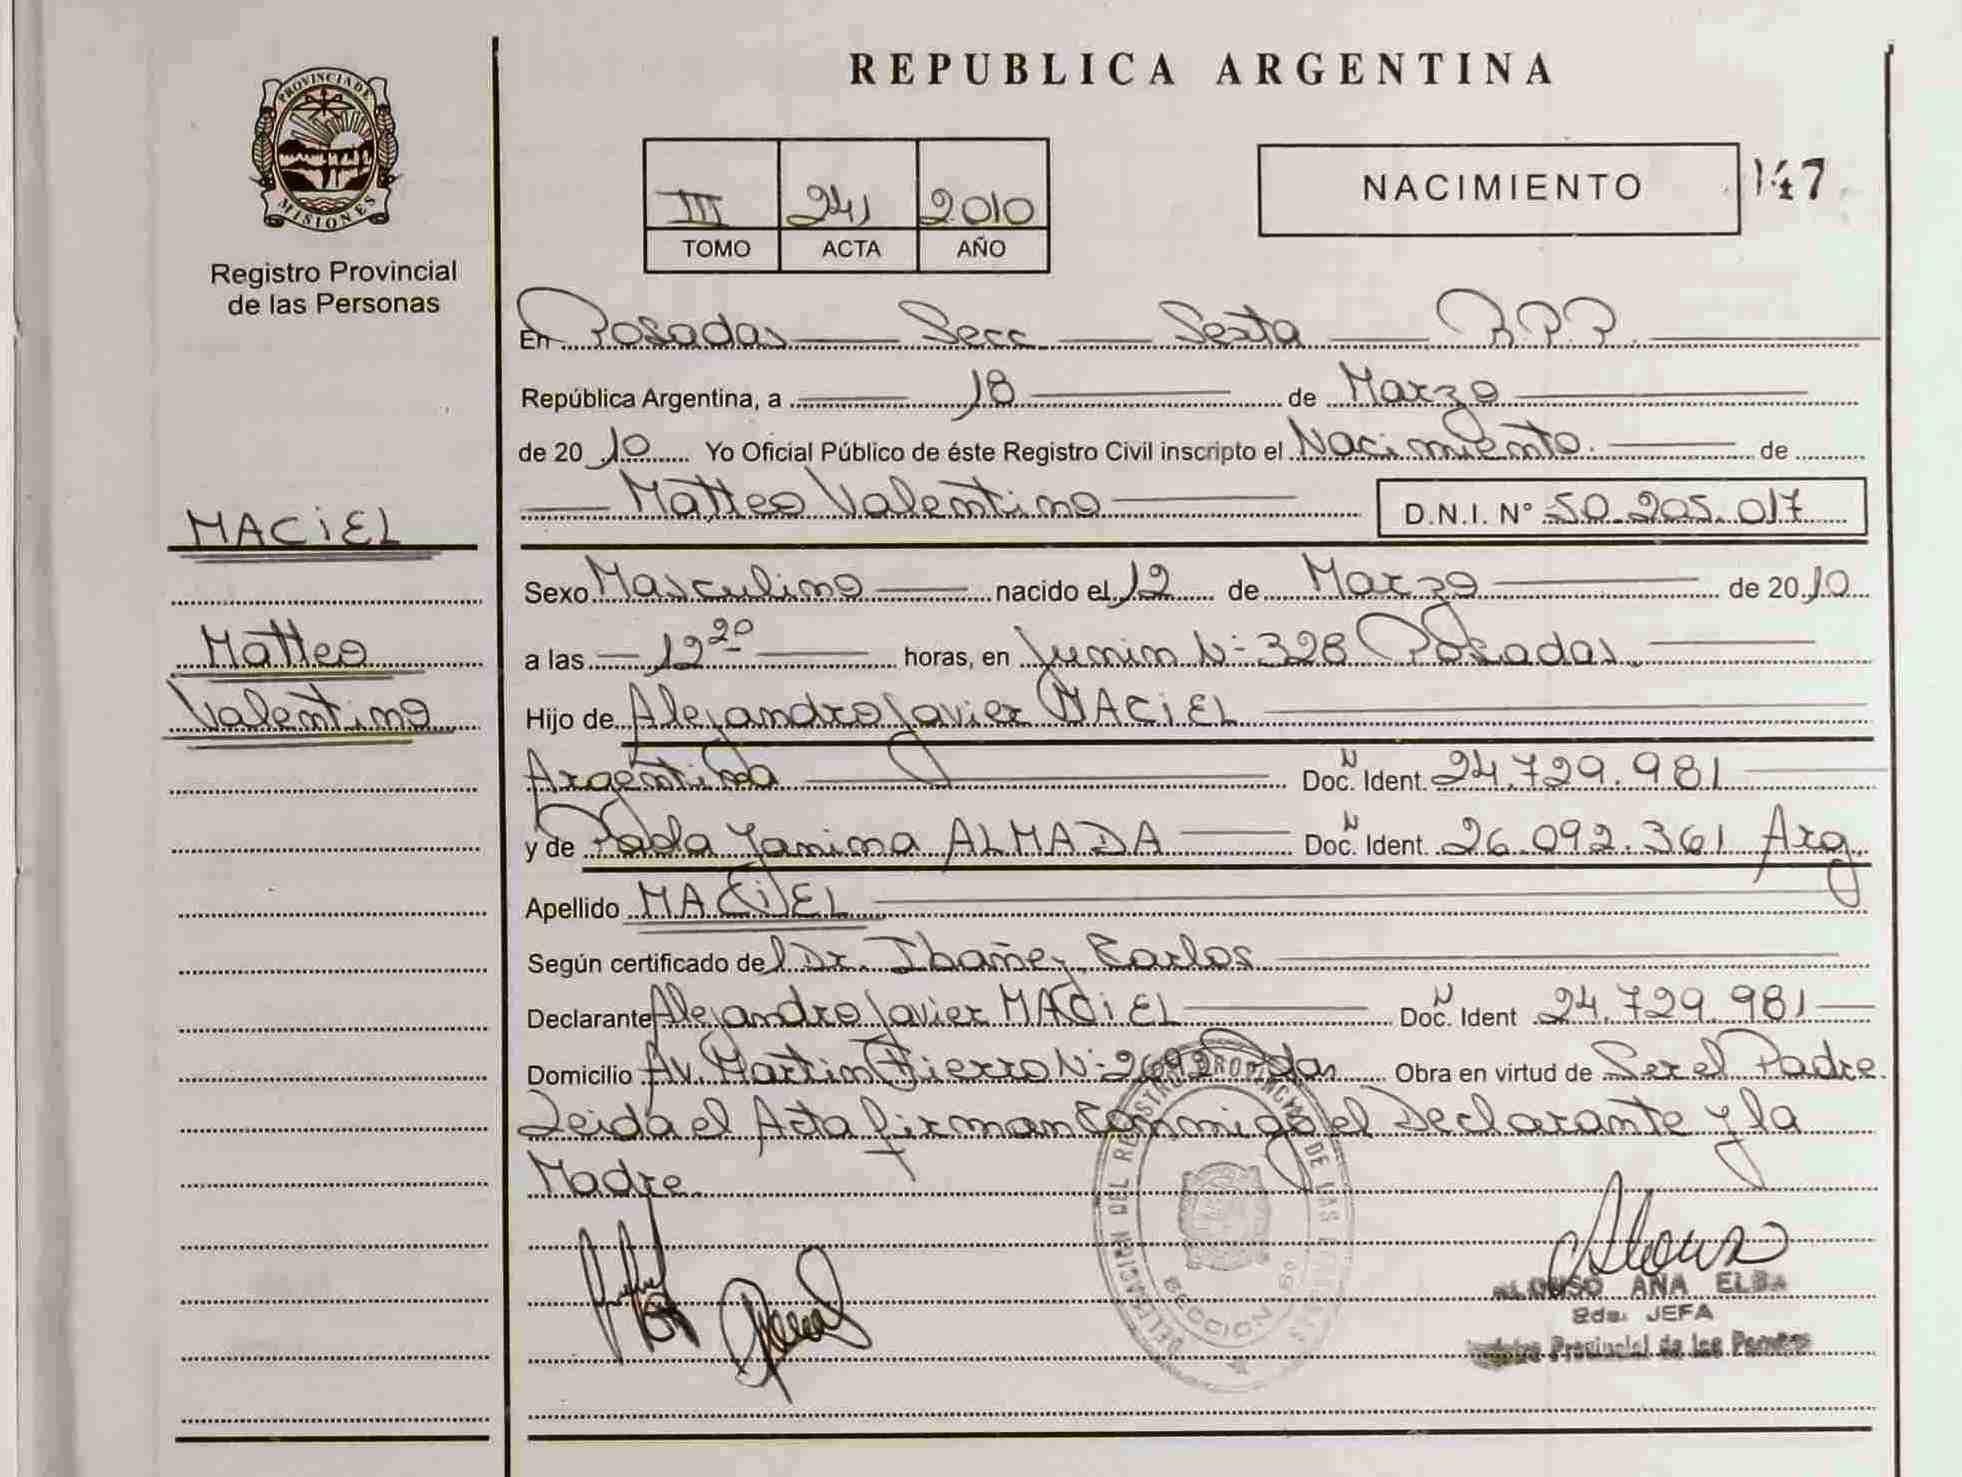 REPUBLICA ARGENTINA
PROVINCIA DE MISIONES
Registro Provincial
de las Personas
III 241 2010
TOMO ACTA AÑO
NACIMIENTO 147
En Posadas Secc. Sexta R.P.P.
República Argentina, a 18 de Marzo
de 2010 Yo Oficial Público de éste Registro Civil inscripto el Nacimiento de
Matteo Valentino D.N.I. N° 50.205.017
MACiEL
Matteo
Valentino
Sexo Masculino nacido el 12 de Marzo de 2010
a las 12 20 horas, en Junin N: 328 Posadas.
Hijo de Alejandro Javier MACiEL
Argentino Doc. N Ident. 24.729.981
y de Paola Yanina ALMADA Doc. N Ident. 26.092.361 Arg.
Apellido MACiEL
Según certificado del Dr. Ibañez Carlos
Declarante Alejandro Javier MACiEL Doc. N Ident 24.729.981
Domicilio Av. Martin Fierro N: 2692 Pdas Obra en virtud de Ser el Padre.
Leida el Acta firman Conmigo el Declarante y la
Madre.
DELEGACION DEL REGISTRO PROVINCIAL DE LAS PERSONAS
SECCION 6°
ALONSO ANA ELBA
2da. JEFA
Registro Provincial de las Personas